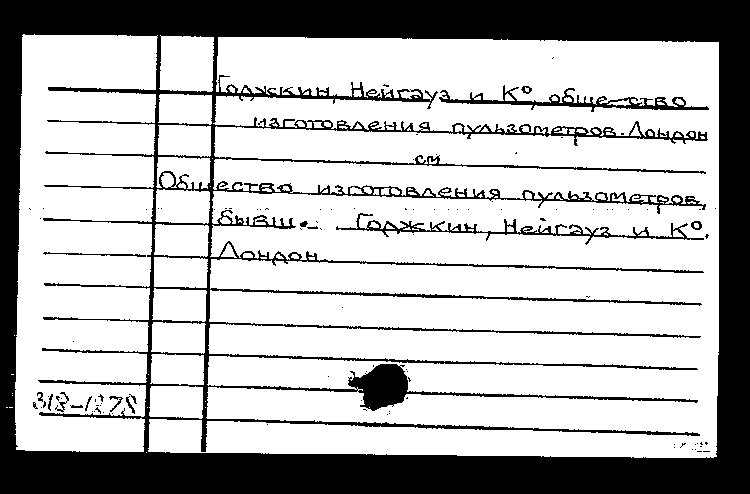 Годжкин, Нейгауз и К°, общество
изготовления пульзометров. Лондон
см
Общество изготовления пульзометров,
бывш. Годжкин, Нейгауз и К°.
Лондон
318-1278